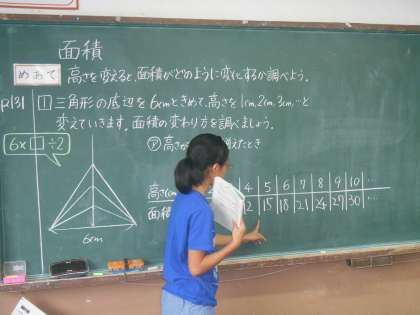 面積
めあて 高さを変えると、面積がどのように変化するか調べよう。
p131 1 三角形の底辺を6cmときめて、高さを1cm、2cm、3cm、…と
変えていきます。面積の変わり方を調べましょう。
6×□÷2
㋐ 高さが 増えたとき
6cm
高さ(cm) 4 5 6 7 8 9 10 …
面積 2 15 18 21 24 27 30 …